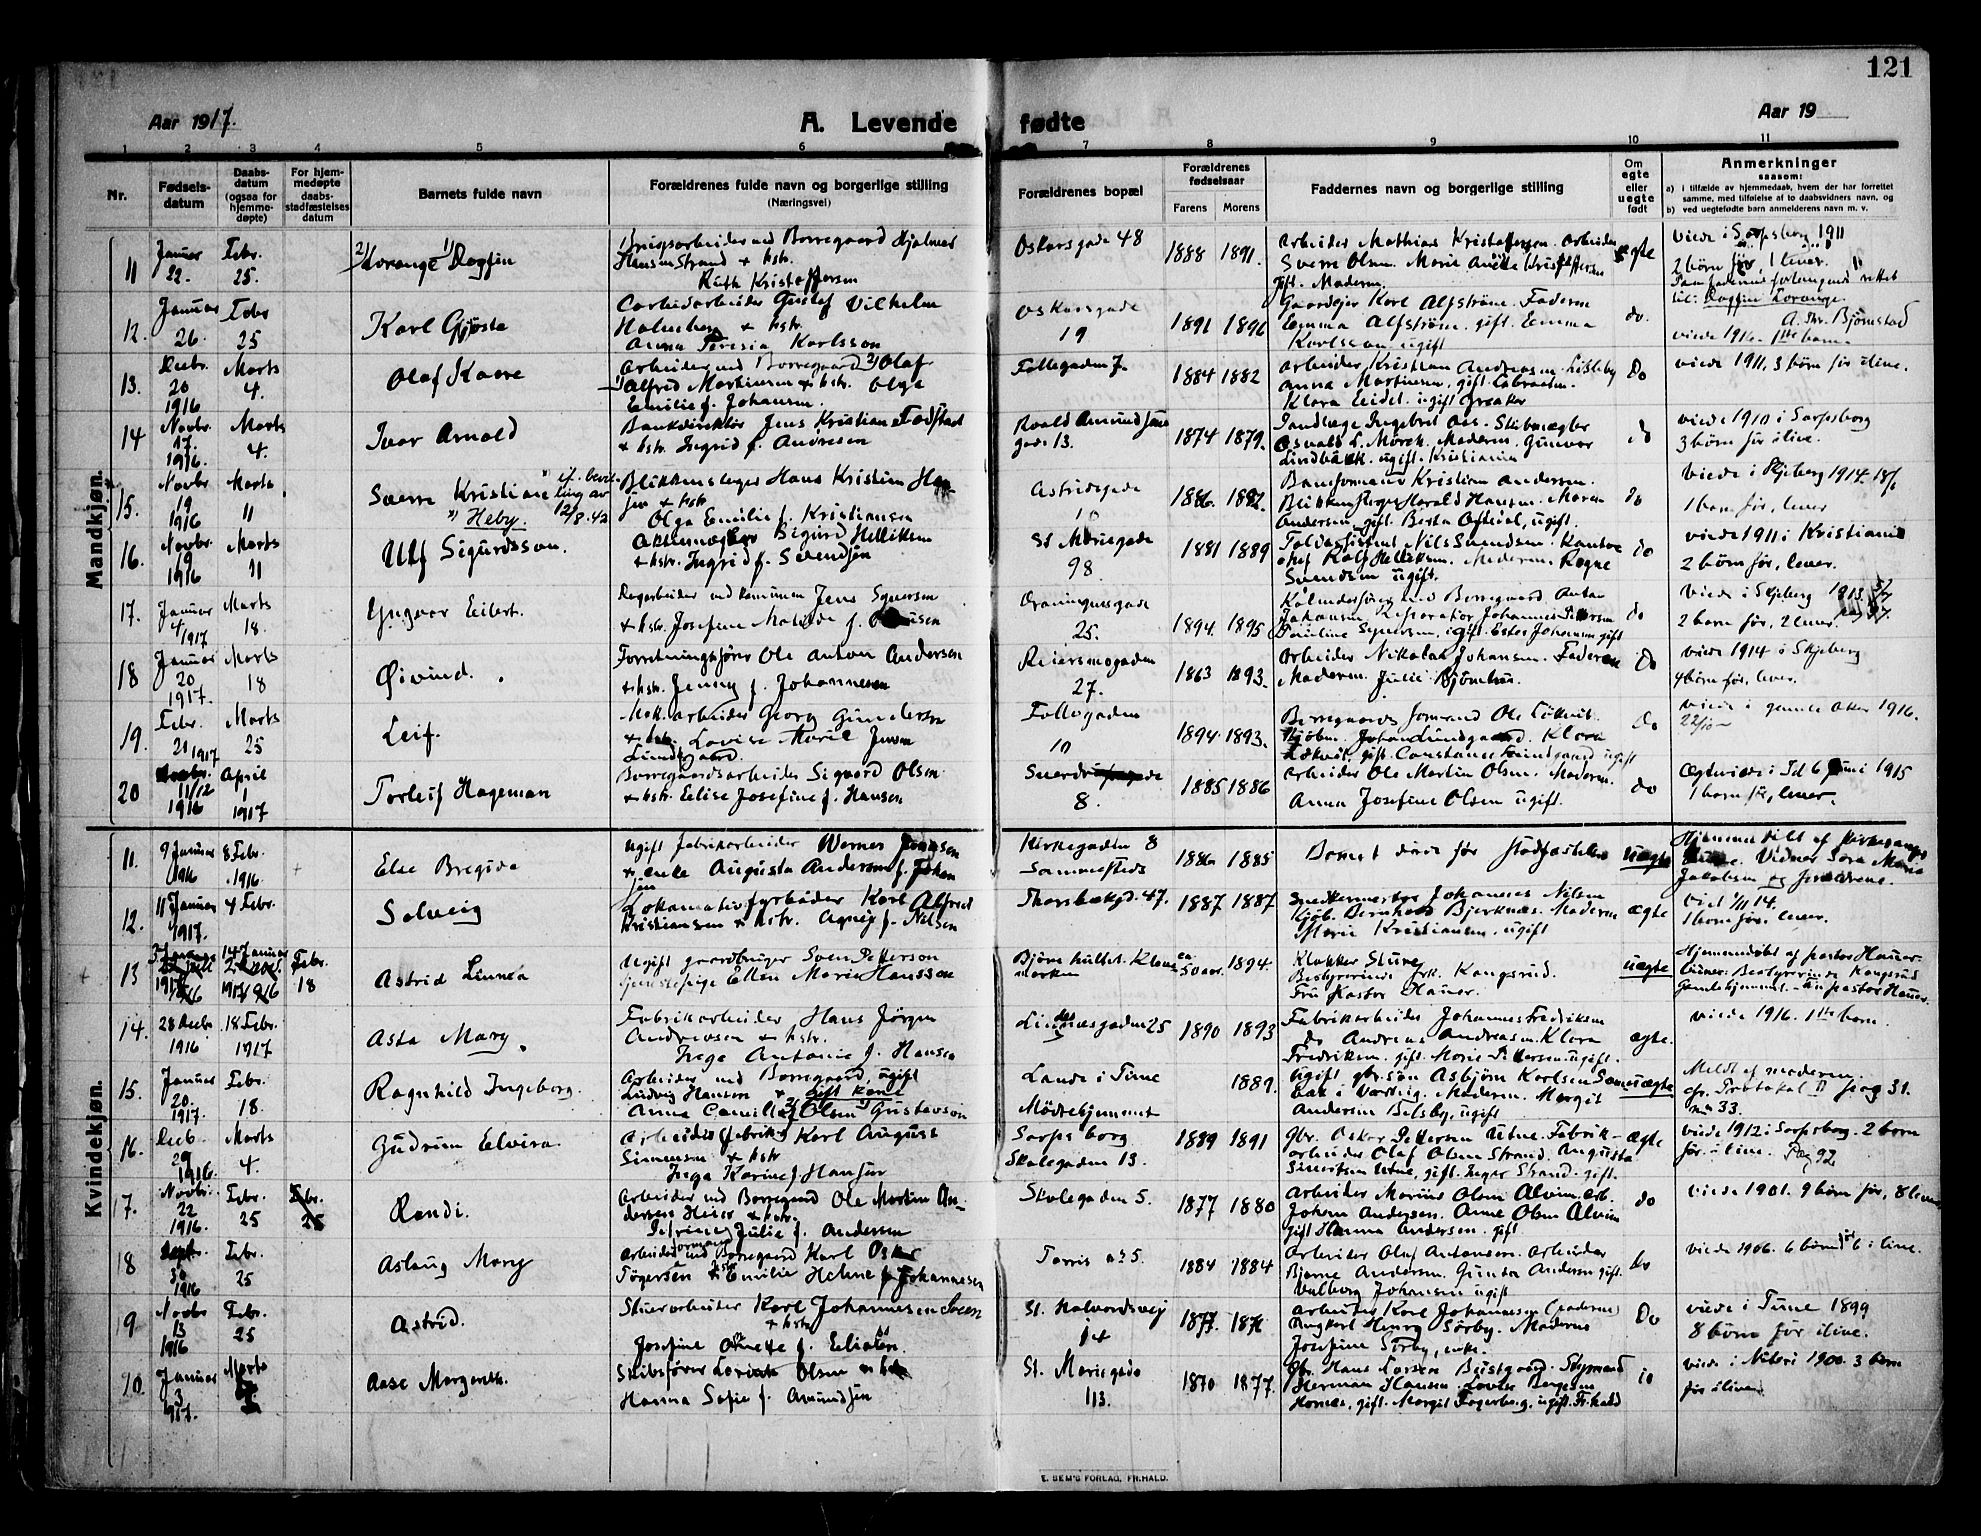 121
Aar 1917.
A. Levende fødte
Aar 19
1 2 3 4 5 6 7 8 9 10 11
Nr.
Fødsels-
datum
Daabs-
datum
(ogsaa for
hjemme-
døpte)
For hjem-
medøpte
daabs-
stadfæstelses
datum
Barnets fulde navn
Forældrenes fulde navn og borgerlige stilling
(Næringsvei)
Forældrenes bopæl
Forældrenes
fødselsaar
Farens Morens
Faddernes navn og borgerlige stilling
Om
egte
eller
uegte
født
Anmerkninger
saasom:
a) i tilfælde av hjemmedaab, hvem der har forrettet
samme, med tilføielse af to daabsvidners navn, og
b) ved uegtefødte barn anmelderens navn m. v.
Mandkjøn.
11
Januar
22.
Febr.
25.
2) Lorange 1) Dagfin
Hansen Strand + hstr.
Ruth Kristoffersen
Oskarsgade 48
1888 1891.
Arbeider Mathias Kristoffersen. Arbeider
Sverre Olsen. Marie Kristoffersen
gift. Moderen.
ægte
viede i Sarpsborg 1911
2 børn før, 1 lever.
til: Dagfin Lorange.
A. Skr. Bjørnstad
12.
Januar
26.
Febr
25
Karl Gjøsta
Gustaf Vilhelm
Holmberg + hstr.
Anna Teresia Karlsson
Oskarsgade
19
1891 1896
Gaardeier Karl Alfstrøm. Faderen
Emma Alfstrøm. gift. Emma
Karlsson. ugift
do.
viede 1916. 1ste barn.
13.
Decbr.
20
1916
Marts
4.
Olaf Kaare
Arbeider ved Borregaard 2) Olaf
1) Alfred Martinsen + hstr. Olga
Emilie f. Johansen.
Follogaden 7.
1884 1882
Arbeider Kristian Andreasen. Lisleby
Anna Martinsen. gift.
Klara Eidet. ugift Greaker
Do
viede 1911. 3 børn før ilive.
14
Novbr.
17.
1916.
Marts
4.
Ivar Arnold
Bankdirektør Jens Kristian Fadstad
+ hstr. Ingrid f. Andresen
Roald Amundsens
gade 13.
1874 1879.
Tandlæge Ingebret Aas. Skibsmægler
Osvald L. Mørch. Moderen. Gunvor
Lindbæk. ugift. Kristiania
do
viede 1910 i Sarpsborg
3 børn før ilive.
15.
Novbr
19
1916
Marts
11
Sverre Kristian
") Heby.
" if. bevil-
ling av
12/8.42
Blikkenslager Hans Kristian Han-
sen + hstr
Olga Emilie f. Kristiansen
Astridsgade
10
1886. 1882.
Baneformann Kristian Andersen.
Blikkenslager Harald Hansen. Maren
Andersen, gift. Berta Oftedal, ugift.
do
viede i Skjeberg 1914
1 barn før, lever
16.
Novbr.
19
1916
Marts
11
Ulf Sigurdsson.
Aktiemægler Sigurd Helliksen
+ hstr. Ingrid f. Svendsen
St Mariegade
98.
1881 1889
Toldassistent Nils Svendsen. Kontor
chef Rolf Helliksen. Moderen. Ragna
Svendsen ugift.
do
viede 1911 i Kristiania
2 børn før, lever.
17.
Januar
4/1917
Marts
18.
Yngvar Eilert.
Dagarbeider ved kommunen Jens Syversen
+ hstr. Josefine Matilde f.
Oraningensgade
25.
1894. 1895
Johansen. Reparatør Johannes Pettersen
Pauline Syversen, gift. Ester Johansen gift
do
viede i Skjeberg 1913.
2 børn før, 2 lever.
18
Januar
20
1917.
Marts
18
Øivind.
Forretningsfører Ole Anton Andersen
+ hstr. Jenny f. Johannesen
Reiersmogaden
27.
1863 1893.
Arbeider Nikolai Johansen. Faderen
Moderen. Julie Bjørnhus.
Do
viede 1914 i Skjeberg
4 børn før, lever.
19.
Febr.
21 1917
Marts
25
Leif.
Mek. arbeider Georg Gundersen
+ hstr. Lovise Marie Jensen
Lundsgaard.
Follogaden
10
1894. 1893.
Borregaards formand Ole Løkvit.
Kjøbm. Johan Lundsgaard. Klara
Løkvit, gift. Constance Lundgaard ugift
Do
viede i gamle Aker 1916.
22/10
20
11/12
1916
April
1
1917
Torleif Hageman
Borregaardsarbeider Sigvard Olsen
+ hstr. Elise Josefine f. Hansen
8.
1885 1886
Arbeider Ole Martin Olsen. Moderen.
Anna Josefine Olsen ugift.
do
Ægteviede i Id 6 Juni 1915
1 barn før, lever.
Kvindekjøn.
11.
9 Januar
1916
8 Febr.
1916.
Else Bregida
Ugift fabrikarbeider Werner
+ enke Augusta Andersen f. Johan
sen
Kirkegaden 8
Sammesteds
1886 1885
Barnet døde før stadfæstelsen
uægte
Hjemmedøbt af
Vidner Sara Marie
Jakobsen og forældrene.
12.
11 Januar
1917.
4 Febr.
Solveig
Lokomativfyrbøder Karl Alfred
Kristiansen + hstr. Agnes f. Nilsen
Thorsbækgd. 47.
1887 1887
Snedkermester Johannes Nilsen
Kjøb. Bernhard Bjerknes. Moderen
Marie Kristiansen. ugift
ægte
viet 1/11 14.
1 barn før, lever.
13
1917
14 Januar
1917
Febr.
18
Astrid Linnea
Ugift gaardbruger Sven Petterson
Ellen Marie Hansson
1894.
Klokker Sture
Bestyrerinde frk. Kongsrud.
Fru Pastor Hauer.
uægte
Hjemmedøbt af pastor Hauer.
14.
28 Decbr
1916
18 Febr.
1917
Asta Mary.
Fabrikarbeider Hans Jørgen
Andresen + hstr.
Inga Antonie f. Hansen
Lindnesgaden 25
1890 1893
Fabrikarbeider Johannes Fredriksen
Do Andreas Andreasen. Klara
Fredriksen. gift. Marie Pettersen. ugift.
ægte.
viede 1916. 1ste barn.
15.
Januar
20.
1917.
Febr.
18.
Ragnhild Ingeborg.
Arbeider ved Borregaard, ugift
Ludvig Hansen + gift kone
Anna Camilla 2) Olsen 1) Gustavson
Lande i Tune
Mødrehjemmet
1889.
Ugift gbr. søn Asbjørn Karlsen
bæk i Varteig. Moderen. Margit
Andersen Bilsby, ugift
uægte
Meldt af moderen.
cfr. Protokol II pag 31.
nr 33.
16.
Decb.
29
1916.
Marts
4.
Gudrun Elvira.
Arbeider (fabrik) Karl August
Simensen + hstr
Inga Karine f. Hansen
Sarpsborg
Skolegaden 13.
1889 1891
Gbr. Oskar Pettersen Utne. Fabrik-
arbeider Olaf Olsen Strand. Augusta
Simensen Utne, gift. Inger Strand. gift.
ægte
viede 1912 i Sarpsborg. 2 børn
før ilive. Pag 92
7.
Novbr.
22
1916.
Febr.
25
Febr.
25
Randi.
Arbeider ved Borregaard Ole Martin An-
dersen Heier + hstr.
Julie f. Andersen
Skolegaden 5.
1877 1880
Arbeider Marius Olsen Alvim. arb.
Johan Andersen. Anne Olsen Alvim
gift Hanna Andersen. gift
do
viede 1901. 9 børn før, 8 lever
18
Septr.
30
1916
Febr.
25
Aslaug Mary
Arbeidsformand ved Borregaard Karl Oskar
Tøgersen + hstr Emilie Helene f. Johannesen
Torris 5.
1884 1884
Arbeider Olaf Antonsen. Arbeider
Bjarne Andersen. Gunda Andersen gift.
Valborg Johansen ugift
do
viede 1906. 6 børn før 6 i live.
9
Novbr
13
1916
Febr.
25
Astrid.
Stuerarbeider Karl Johannesen Svens
+ hstr
Josefine Anette f. Eliasen.
St. Halvordsvej
1877. 1876
Arbeider Karl Johannesen (faderen)
Henry Sørby. Moderen
Josefine Sørby, enke.
Do
viede i Tune 1899
8 børn før ilive.
20.
Januar
3
1917.
Marts
Aase Margreth.
Skibsfører Olsen
Hanna Sofie f. Amundsen
St. Mariegade
113.
1870 1877.
Gbr. Hans Larsen Bustgaard. Styrmand
Herman Hansen. Lovise
Hornes, gift. Margit Fagerberg, ugift. Fr.hald
do
viede i Nateri 1900. 3 børn
før ilive
E. SEM'S FORLAG, FR.HALD.